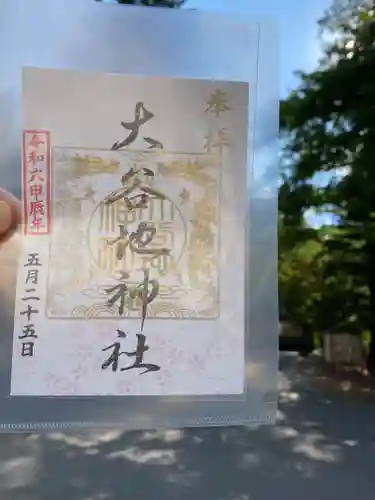 奉拝
大谷地神社
令和六甲辰年
五月二十五日